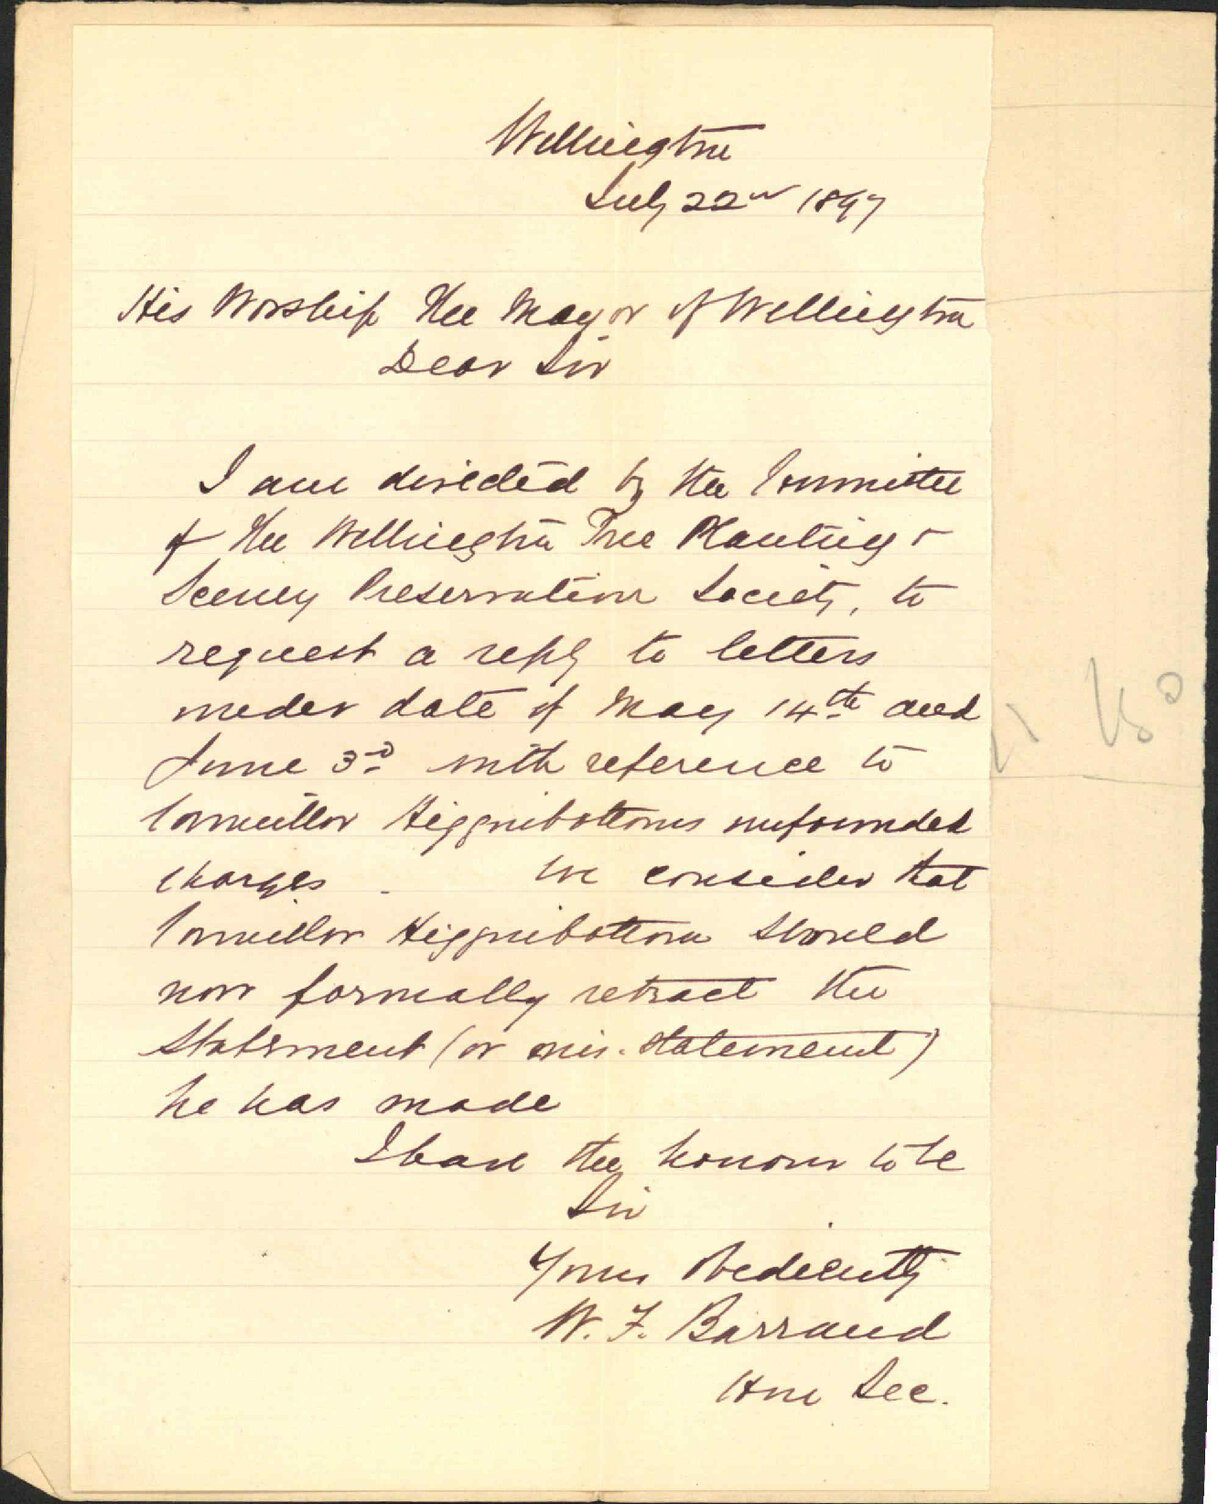 Wellington
July 22nd 1897
His Worship The Mayor of Wellington
Dear Sir
I am directed by the Committee
of the Wellington Tree Planting &
Scenery Preservation Society, to
request a reply to letters
under date of May 14th and
June 3rd with reference to
Councillor Higginbottoms unfounded
charges. We consider that
Councillor Higginbottom should
now formally retract the
statement (or mis-statement)
he has made
I have the honour to be
Sir
Yours Obediently
W. F. Barraud
Hon Sec.